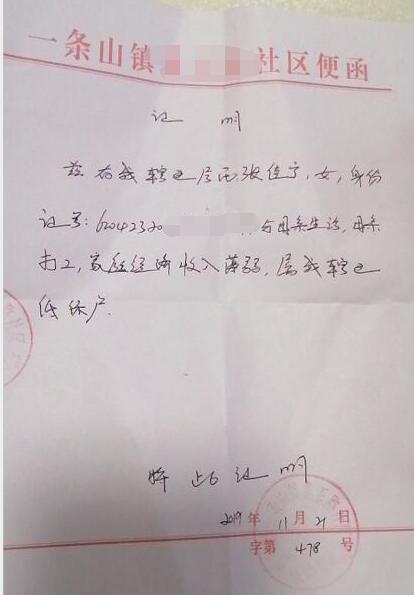 一条山镇 社区便函
证 明
兹有我辖区居民张佳宁,女,身份
证号:62042320 与母亲生活,母亲
打工,家庭经济收入薄弱,属我辖区
低保户
特此证明
2019年11月21日
字第 478 号